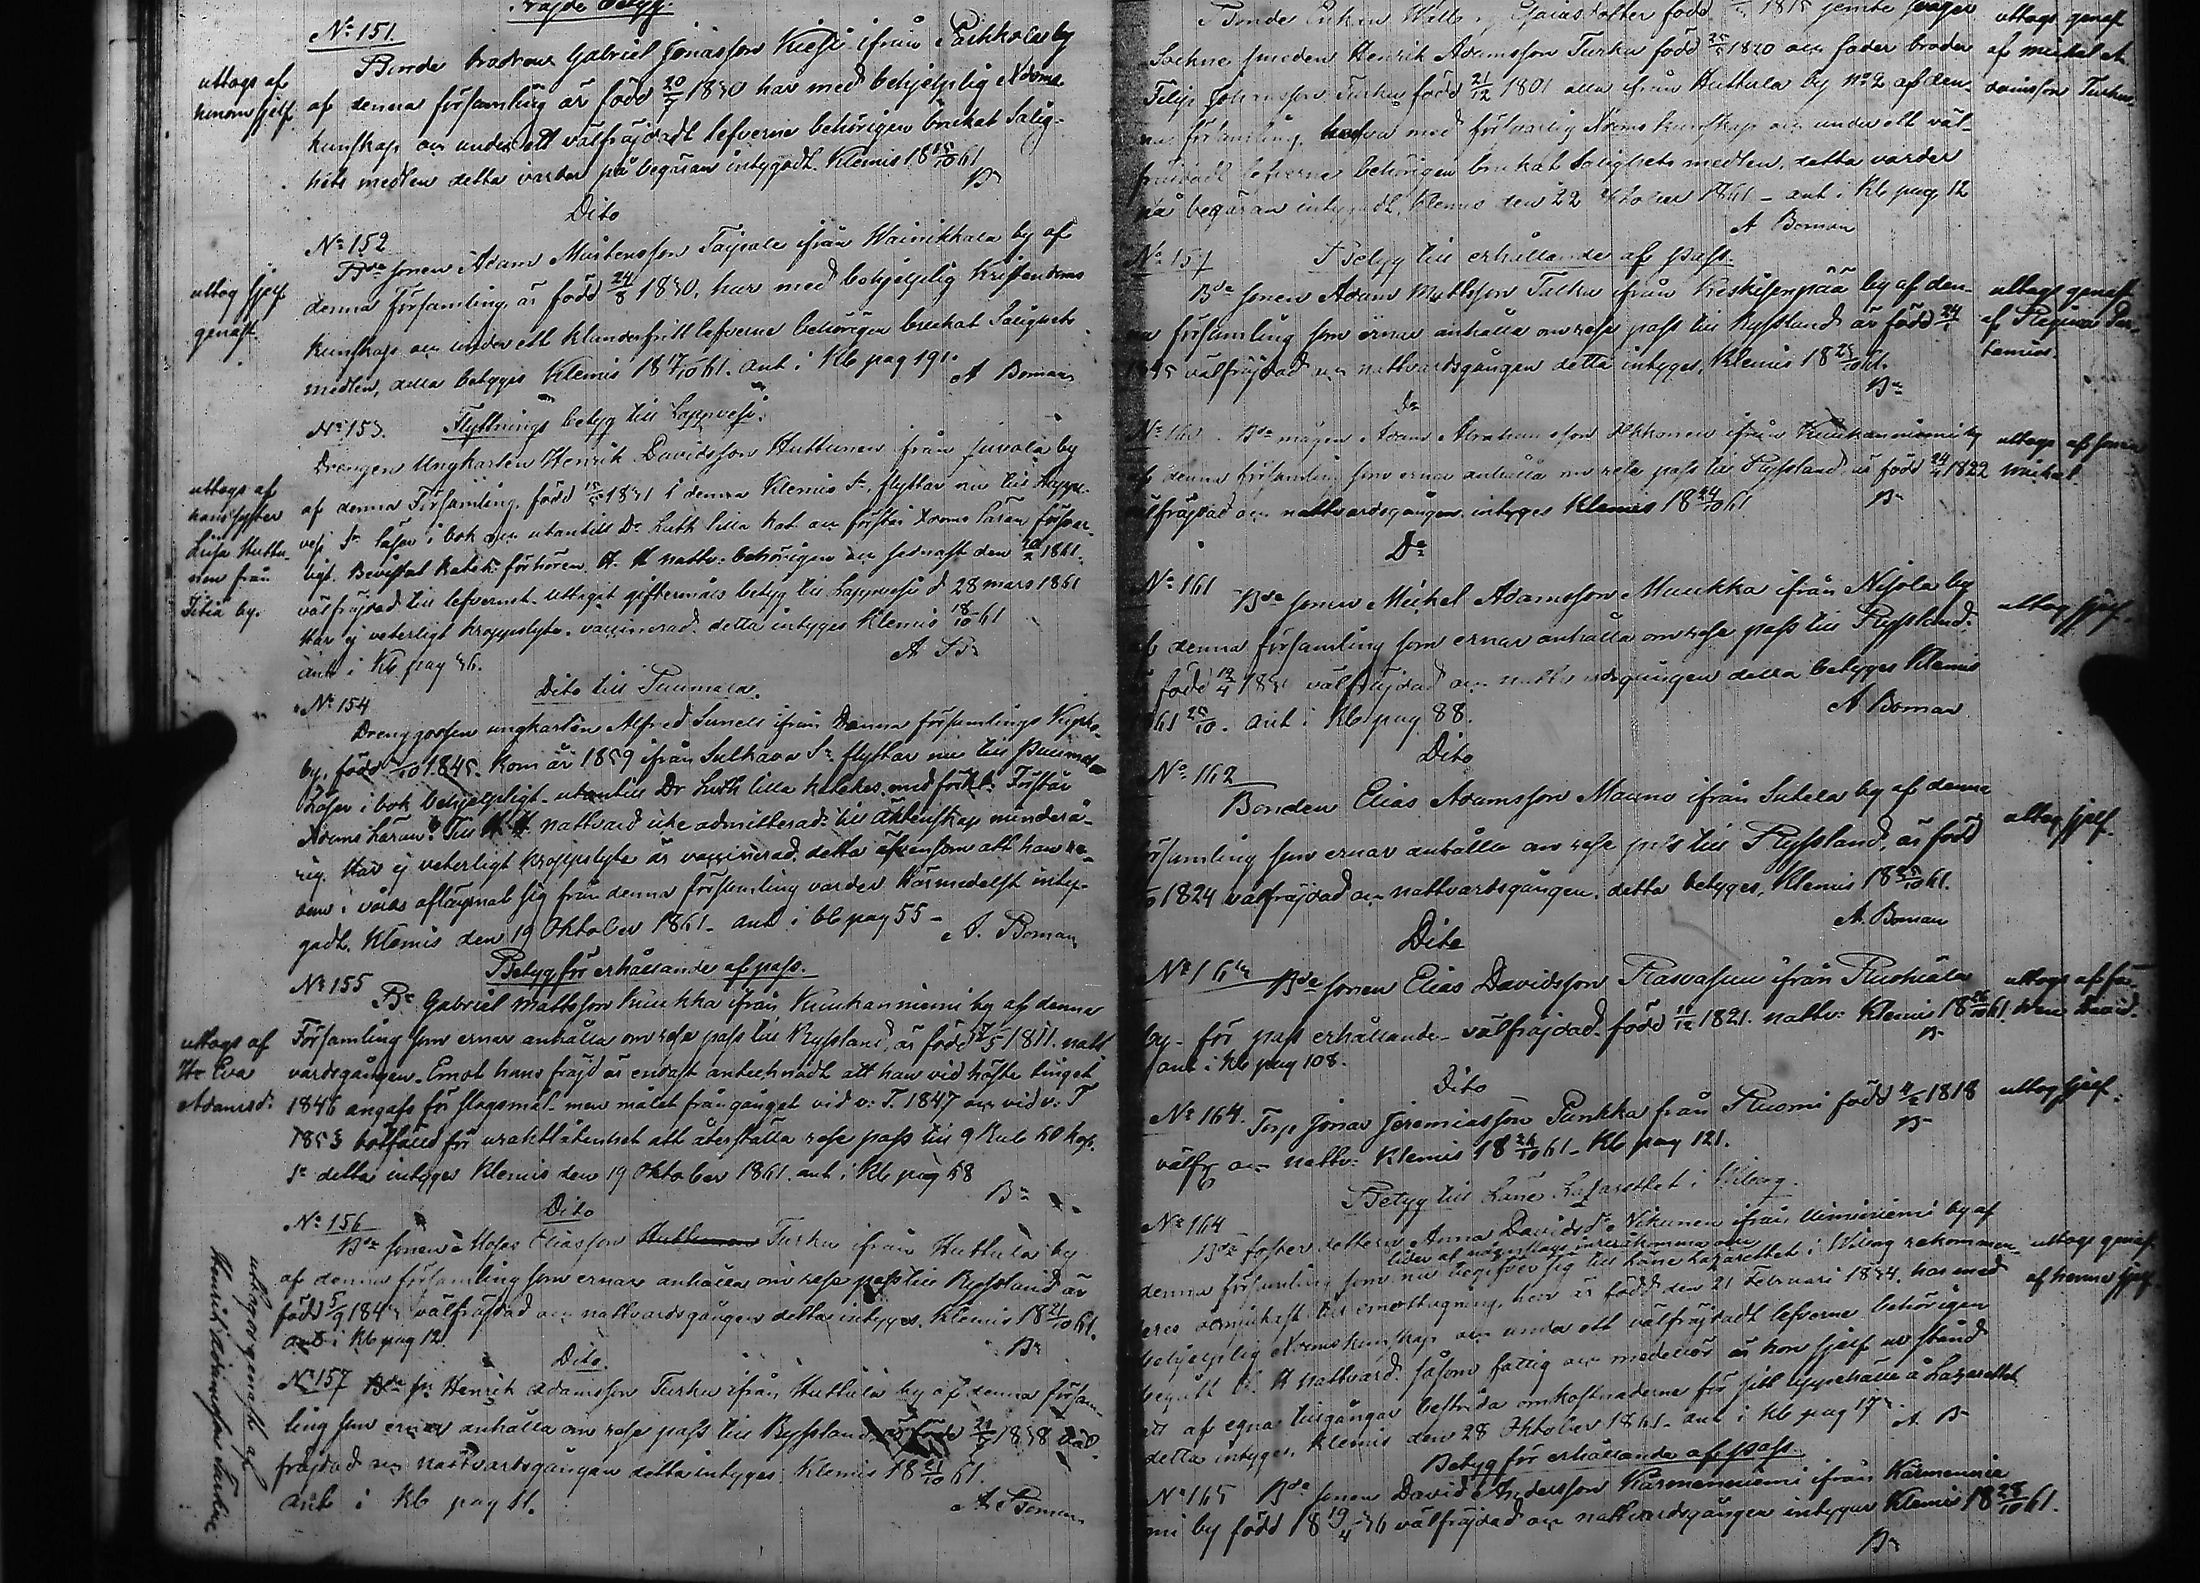 Fräjde betyg.
No 151.
uttogs af
henom sjelf.
Bonde brodren Gabriel Jonasson Kiesi ifrån Paihkola by
af denna församling är född 20/7 1830 har med behjelplig Xdoms
kunskap och under ett välfräjdadt lefverne behörigen brukat Salig-
hets medlen detta varder på begäran intygadt. Klemis 18 15/10 61
Bn
Dito
No 152
uttog sjelf
genast.
Bde sonen Adam Mårtensson Taipale ifrån Wainikkala by af
denna Församling är född 24/8 1830, har med behjelplig Kristendoms
kunskap och under ett klanderfritt lefverne behörigen brukat Salighets
medlen, detta betyges Klemis 18 17/10 61. ant i Kb pag 191.
A Boman
No 153. Flyttnings betyg till Lappvesi.
uttogs af
hans syster
Lisa Huttu-
nen från
by.
Drengen Ungkarlen Henrik Davidsson Huttunen från by
af denna Församling, född 1831 i denna Klemis Sn, flyttar nu till Lapp-
vesi Sn läser i bok och utantill Dr Luth lilla kat och förstår Xdoms läran försvar-
ligt. Bevistat katek: förhören. H. H nattv: behörigen och sednast den 1861.
välfräjdad till lefvernet. Uttagit giftermåls betyg till Lappvesi d 28 mars 1861
Har ej veterligt kroppslyte. vaccinerad. detta intyges Klemis 18/10 61
ant i Kb pag 36.
A Bn
Dito till Puumala.
No 154
Drenggossen ungkarlen Alfred Sunell ifrån Denna församlings
by. född /10 1845. kom år 1859 ifrån Sulkava Sn flyttar nu till Puumala
Läser i bok behjelpligt. utantill Dr Luth lilla katekes med förkl: Förstår
Xdoms Läran. Till H. H. nattvard icke admitterad: till äktenskap minderå-
rig. Har ej veterligt kroppslyte är vaccinerad. detta äfvensom att han re-
dan i våras aflägsnat sig från denna församling varder härmedelst inty-
gadt. Klemis den 19 Oktober 1861. ant i kb pag 55 -
A. Boman
Betyg för erhållande af pass.
No 155
uttogs af
Hu Eva
Adamsd:
Bn Gabriel Mattsson Kuukka ifrån Kuukanniemi by af denna
Församling som ernar anhålla om rese pass till Ryssland, är född 1811. natt
vardsgången. Emot hans fräjd är endast antecknadt att han vid höste tinget
1846 angafs för slagsmål men målet frångånget vid v: T. 1847 och vid v: T
1853 bötfälld för uraktlåtenhet att återställa rese pass till 9 Rub 60 kop.
Sr detta intyges Klemis den 19 Oktober 1861. ant i Kb pag 58
Bn
Dito
No 156
uttogs genast af
Henrik Adamsson Turku
Bde sonen Moses Eliasson Turku ifrån Huttula by
af denna församling som ernar anhålla om rese pass till Ryssland är
född 5/9 184 välfräjdad och nattvardsgången detta intyges. Klemis 18 21/10 61.
ant i Kb pag 12.
Bn
Dito.
No 157 Bde sn Henrik Adamsson Turku ifrån Huttula by af denna försam-
ling som ernar anhålla om rese pass till Ryssland är född 1838 väl-
fräjdad och nattvardsgången detta intyges Klemis 18 21/10 61.
ant i Kb pag 11.
A Boman
Bonde Enkan född 1815 jemte
uttogs genast
af Michel A-
damsson Turku.
Sockne smeden Henrik Adamsson Turku född 1820 och fader broder
Filip Johansson Turku född 21/12 1801 alla ifrån Huttula by No 2 af den-
na församling, hafva med försvarlig Xdoms kunskap och under ett väl-
fräjdadt lefverne behörigen brukat Salighets medlen, detta varder
på begäran intygadt, Klemis den 22 Oktober 1861 - ant i Kb pag 12
A Boman
Betyg till erhållande af pass
uttogs genast
af Regina
Bde sonen Adam Mattsson Talka ifrån Keskisenpää by af den
na församling som ernar anhålla om rese pass till Ryssland är född
välfräjdad och nattvardsgången detta intyges, Klemis 18 61.
Bn
Do
No 160. Bde mågen Adam Abrahamsson ifrån Kuukanniemi by
uttogs af sonen
Michel.
af denna församling som ernar anhålla om rese pass till Ryssland är född 1822
välfräjdad och nattvardsgången intyges Klemis 18 24/10 61
Bn
Do
No 161
uttog sjelf.
Bde sonen Michel Adamsson Muukka ifrån Nisola by
af denna församling som ernar anhålla om rese pass till Ryssland.
är född 183 välfräjdad och nattvardsgången detta betyges Klemis
1861 25/10. ant i Kb pag 88.
A Boman
Dito
No 162
uttog sjelf.
Bonden Elias Adamsson Mauno ifrån Sutela by af denna
församling som ernar anhålla om rese pass till Ryssland, är född
1824 välfräjdad och nattvardsgången. detta betyges, Klemis 18 25/10 61.
A. Boman
Dito
Bde sonen Elias Davidsson Rasvasuu ifrån Ruohiala
uttogs af
David.
by. för pass erhållande. välfräjdad. född 11/12 1821. nattv: Klemis 18 61.
Bn
ant i Kb pag 108.
Dito
No 164. Torp Jonas Jeremiasson Punkka från Ruomi född 1818
uttog sjelf.
välfr och nattv: Klemis 18 26/10 61. Kb pag 121.
Bn
Betyg till Läne Lazarettet i Wiborg.
No 164
uttogs genast
af henne sjelf.
Bde foster dottern Anna Davidsdr Nikunen ifrån by af
denna församling som nu begifver sig till Läne Lazarettet i Wiborg rekommen-
deres ödmjukast till emottagning, hon är född den 21 Februari 1834, har med
behjelplig Xdoms kunskap och under ett välfräjdadt lefverne behörigen
begått H. H nattvard. såsom fattig och medellös är hon sjelf ur stånd
att af egna tillgångar bestrida omkostnaderne för sitt uppehälle å Lazarettet.
detta intyges, Klemis den 28 Oktober 1861. ant i Kb pag
A. Bn
Betyg för erhållande af pass.
No 165 Bde sonen David Andersson Kärmeniemi ifrån Kärmenie
mi by född 18 19/4 36 välfräjdad och nattvardsgången intyges Klemis 18 61.
Bn